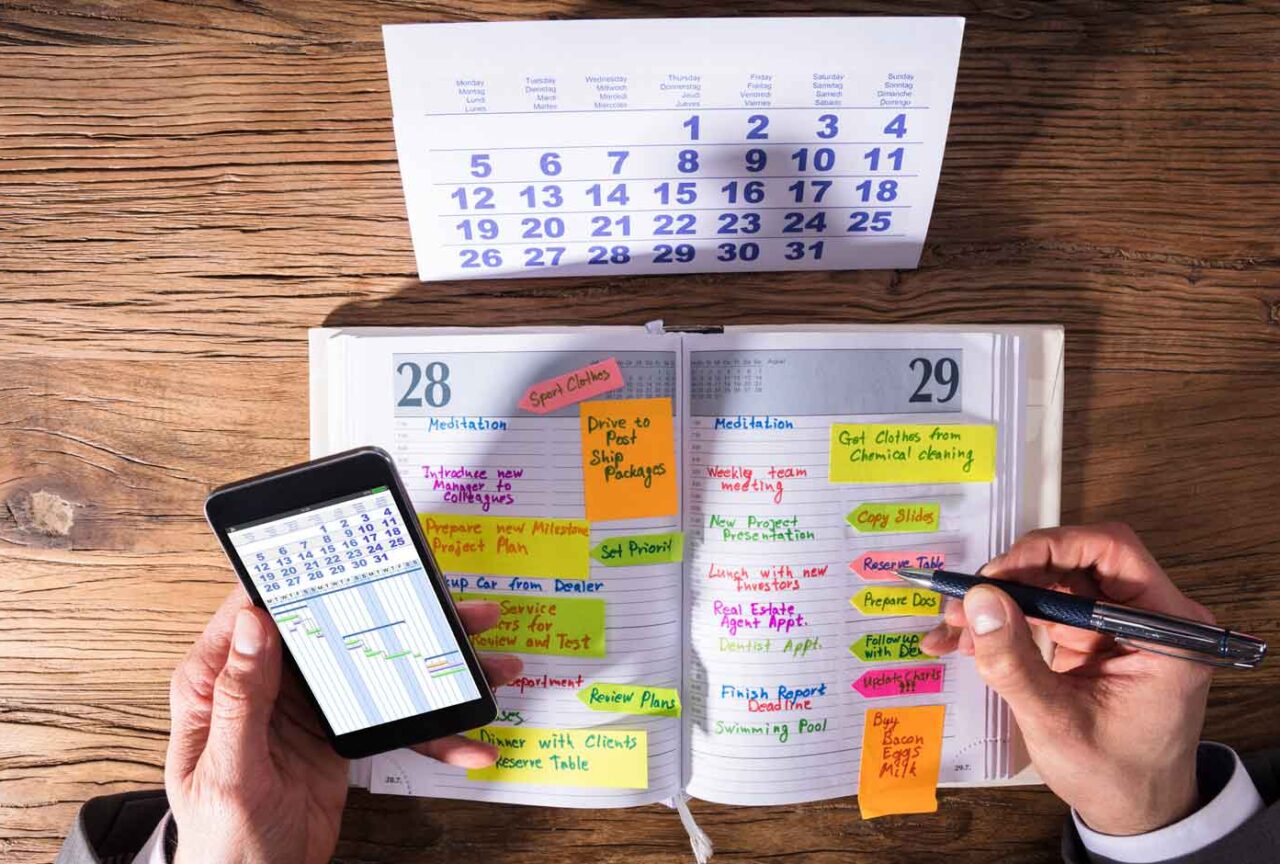 Monday Tuesday Wednesday Thursday Friday Saturday Sunday
Montag Dienstag Mittwoch Donnerstag Freitag Samstag Sonntag
Lundi Mardi Mercredi Jeudi Vendredi Samedi Dimanche
Lunes Martes Miercoles Jueves Viernes Sábado Domingo
1 2 3 4
5 6 7 8 9 10 11
12 13 14 15 16 17 18
19 20 21 22 23 24 25
26 27 28 29 30 31
28
Sport Clothes
Meditation
Drive to
Post
Ship
Packages
Introduce new
Manager to
Colleagues
Prepare new Milestone
Project Plan
Set Priorit
up Car from Dealer
Service
for
Review and Test
Department
Review Plans
Dinner with Clients
Reserve Table
28.7.
29
Meditation
Get Clothes from
Chemical cleaning
Weekly team
meeting
Copy Slides
New Project
Presentation
Reserve Table
Lunch with new
Investors
Prepare Docs
Real Estate
Agent Appt.
Dentist Appt.
Follow up
with De
Update Charts
!!!
Finish Report
Deadline
Swimming Pool
Buy
Bacon
Eggs
Milk
29.7.
1 2 3 4
5 6 7 8 9 10 11
12 13 14 15 16 17 18
19 20 21 22 23 24 25
26 27 28 29 30 31
M T W T F S S M T W T F S S